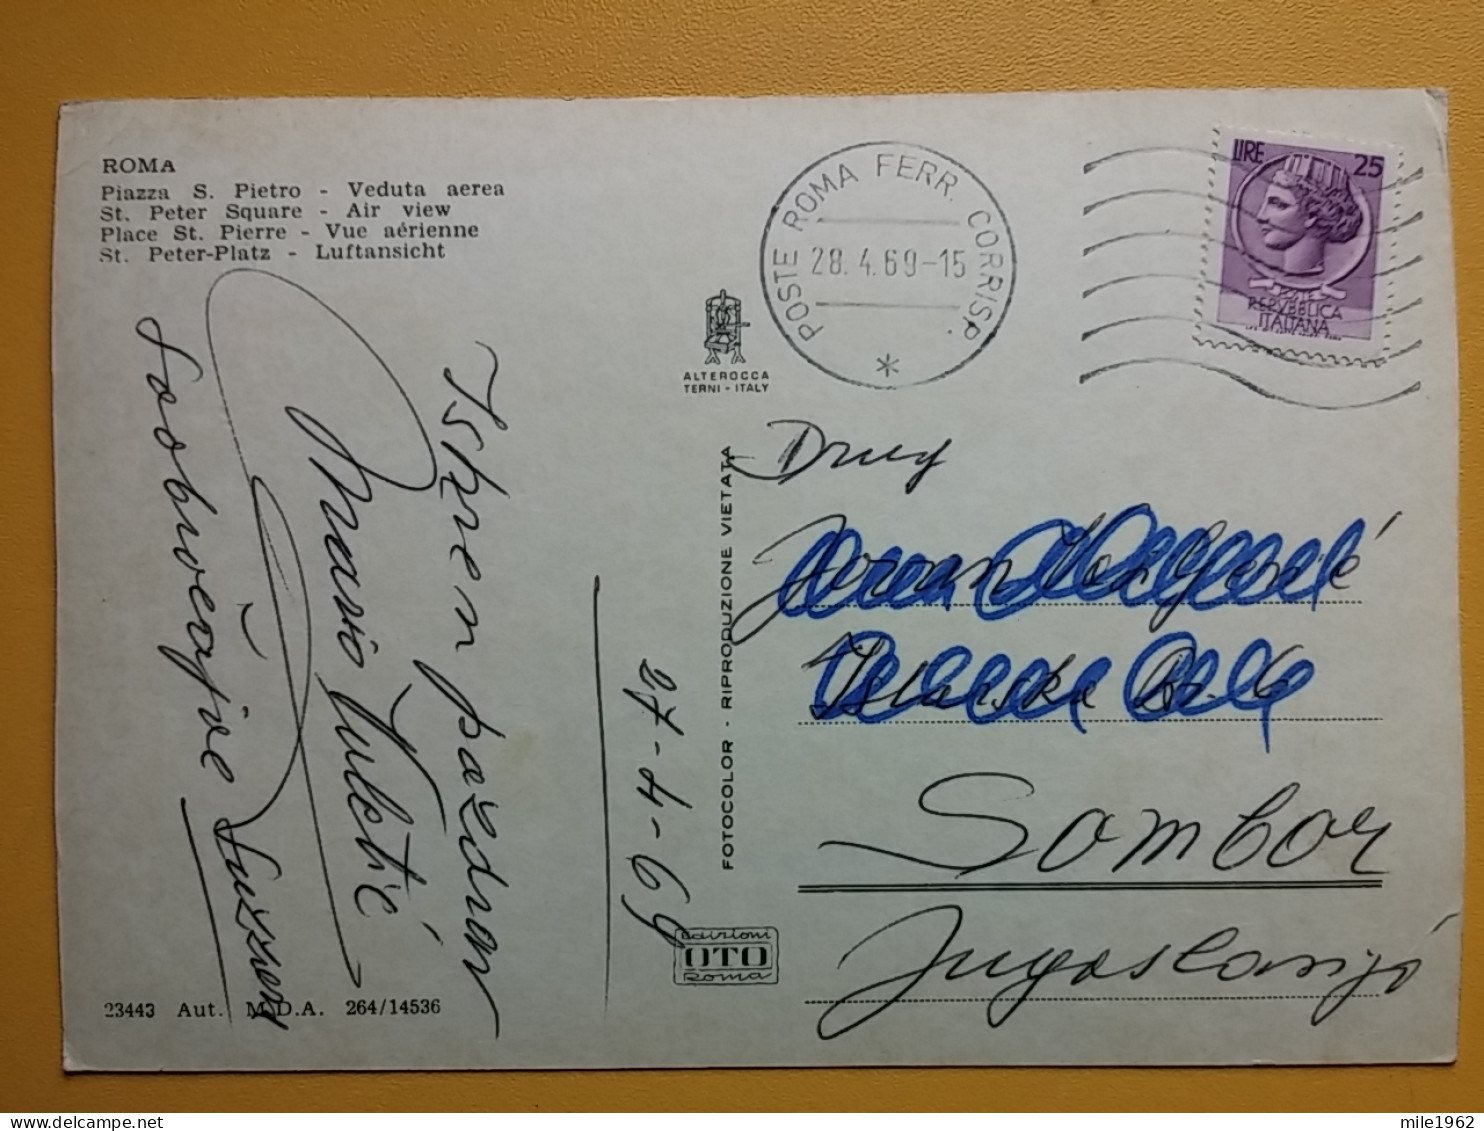 ROMA
Piazza S. Pietro - Veduta aerea
St. Peter Square - Air view
Place St. Pierre - Vue aérienne
St. Peter-Platz - Luftansicht
Iskren pozdrav
Mario
27-4-69
23443 Aut. M.D.A. 264/14536
ALTEROCCA
TERNI - ITALY
FOTOCOLOR - RIPRODUZIONE VIETATA
Edizioni
OTO
Roma
POSTE ROMA FERR. CORRISP.
28.4.69-15
LIRE 25
POSTE
REPVBBLICA
ITALIANA
Drug
Sombor
Jugoslavija
mile1962